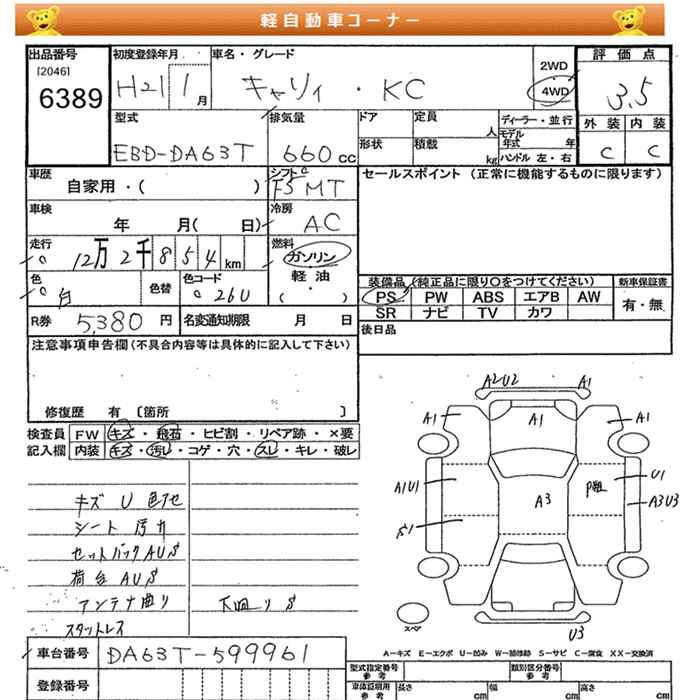 軽自動車コーナー
出品番号 初度登録年月 車名・グレード 評価点
[2046]
6389 H21 1月 キャリイ・KC 2WD 4WD 3.5
型式 排気量 ドア 定員 人 ディーラー・並行 外装 内装
EBD-DA63T 660cc 形状 積載 kg モデル年式 年 ハンドル 左・右 C C
車歴 シフト セールスポイント (正常に機能するものに限ります)
自家用・( ) F5 MT
車検 冷房
年 月( 日) AC
走行 燃料
12万2千854km ガソリン
軽油
( )
色 色替 色コード 装備品(純正品に限り○をつけてください) 新車保証書
白 26U PS PW ABS エアB AW 有・無
SR ナビ TV カワ
R券 5,380円 名変通知期限 月 日 後日品
注意事項申告欄(不具合内容等は具体的に記入して下さい)
修復歴 有 [箇所 ]
検査員 FW キズ・飛石・ヒビ割・リペア跡・×要
記入欄 内装 キズ・汚レ・コゲ・穴・スレ・キレ・破レ
A2U2 A1
A1 A1 A1
A1U1 A3 U1
A3U3
S1
スペア
U3
キズ U 色アセ
シート 汚れ
セットバック AUS
荷台 AUS
アンテナ曲り 下廻りS
スタットレス
A-キズ E-エクボ U-凹み W-補修跡 S-サビ C-腐食 XX-交換済
車台番号 DA63T-599961
型式指定番号 参考 類別区分番号 参考
登録番号 車体証明用 参考 長さ cm 幅 cm 高さ cm